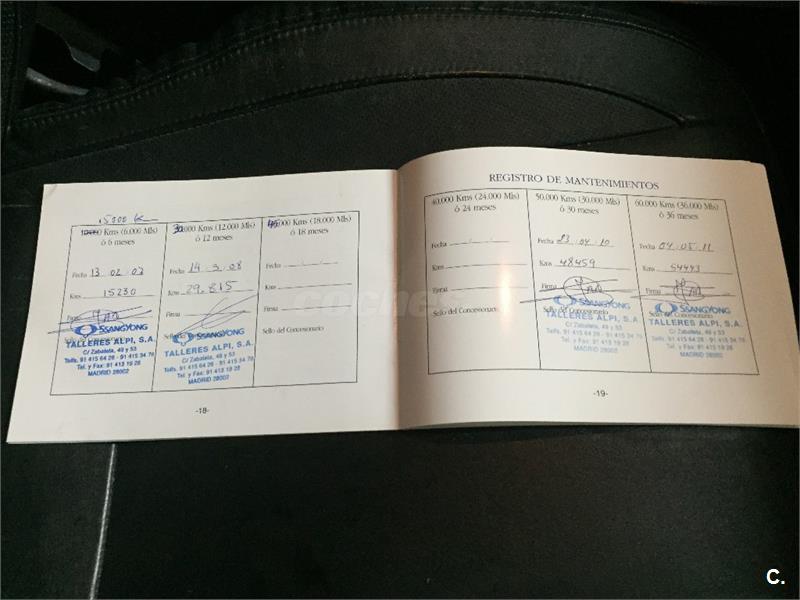 15000 K
10000 Kms (6.000 Mls)
ó 6 meses
Fecha 13 02 07
Kms 15230
Firma
SSANGYONG
TALLERES ALPI, S.A.
C/ Zabaleta, 49 y 53
Telfs. 91 415 64 26 - 91 415 34 76
Tel. y Fax: 91 413 19 28
MADRID 28002
30.000 Kms (12.000 Mls)
ó 12 meses
Fecha 14 - 3 - 08
Kms 29.815
Firma
SSANGYONG
TALLERES ALPI, S.A.
C/ Zabaleta, 49 y 53
Telfs. 91 415 64 26 - 91 415 34 76
Tel. y Fax: 91 413 19 28
MADRID 28002
45.000 Kms (18.000 Mls)
ó 18 meses
Fecha
Kms
Firma
Sello del Concesionario
-18-
REGISTRO DE MANTENIMIENTOS
40.000 Kms (24.000 Mls)
ó 24 meses
Fecha
Kms
Firma
Sello del Concesionario
50.000 Kms (30.000 Mls)
ó 30 meses
Fecha 23 04 10
Kms 48459
Firma
SSANGYONG
Sello del Concesionario
TALLERES ALPI, S.A.
C/ Zabaleta, 49 y 53
Telfs. 91 415 64 26 - 91 415 34 76
Tel. y Fax: 91 413 19 28
MADRID 28002
60.000 Kms (36.000 Mls)
ó 36 meses
Fecha 04 05 11
Kms 54443
Firma
SSANGYONG
Sello del Concesionario
TALLERES ALPI, S.A.
C/ Zabaleta, 49 y 53
Telfs. 91 415 64 26 - 91 415 34 76
Tel. y Fax: 91 413 19 28
MADRID 28002
-19-
coches
C.